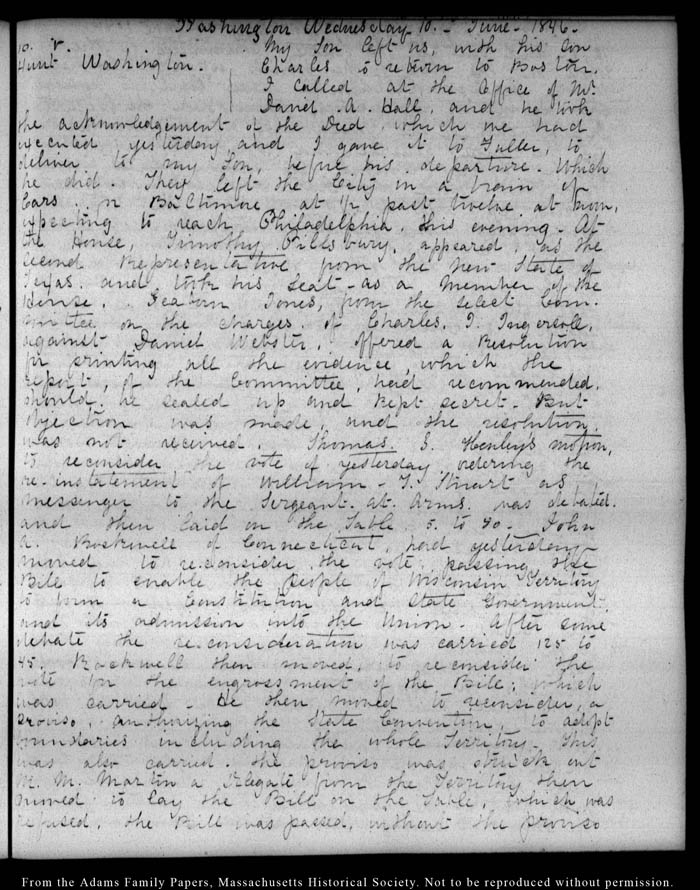 Washington Wednesday 10. June 1846.
10. V. My Son left us, with his Son
Hunt Washington. Charles to return to Boston.
I called at the Office of Mr
Daniel A. Hall, and he took
the acknowledgement of the Deed, which we had
executed yesterday and I gave it to Fuller, to
deliver to my Son, before his departure. Which
he did. They left the City in a train of
Cars for Baltimore at ½ past twelve at noon,
expecting to reach Philadelphia this evening. At
the House, Timothy Pillsbury, appeared, as the
second Representative from the new State of
Texas. and took his Seat as a member of the
House. Seaborn Jones, from the select Com-
mittee on the charges of Charles. J. Ingersoll,
against Daniel Webster, offered a Resolution
for printing all the evidence, which the
report, of the Committee, had recommended.
should be sealed up and kept secret. But
objection was made, and the resolution.
was not received. Thomas. J. Henley's motion,
to reconsider the vote of yesterday ordering the
re-instatement of William J. Stuart as
messenger to the Sergeant at Arms was debated.
and then laid on the Table, to 40. John
A. Rockwell of Connecticut, had yesterday
moved to reconsider the vote, passing the
Bill to enable the people of Wisconsin Territory
to form a Constitution and State Government.
and its admission into the Union. After some
debate the reconsideration was carried 125 to
45. Rockwell then moved, to reconsider the
vote for the engrossment of the Bill; which
was carried. He then moved to reconsider, a
proviso, authorizing the State Convention, to adopt
boundaries including the whole Territory. This
was also carried. the proviso was struck out
M. M. Martin a Delegate from the Territory then
moved to lay the Bill on the Table, which was
refused. the Bill was passed, without the proviso
From the Adams Family Papers, Massachusetts Historical Society. Not to be reproduced without permission.